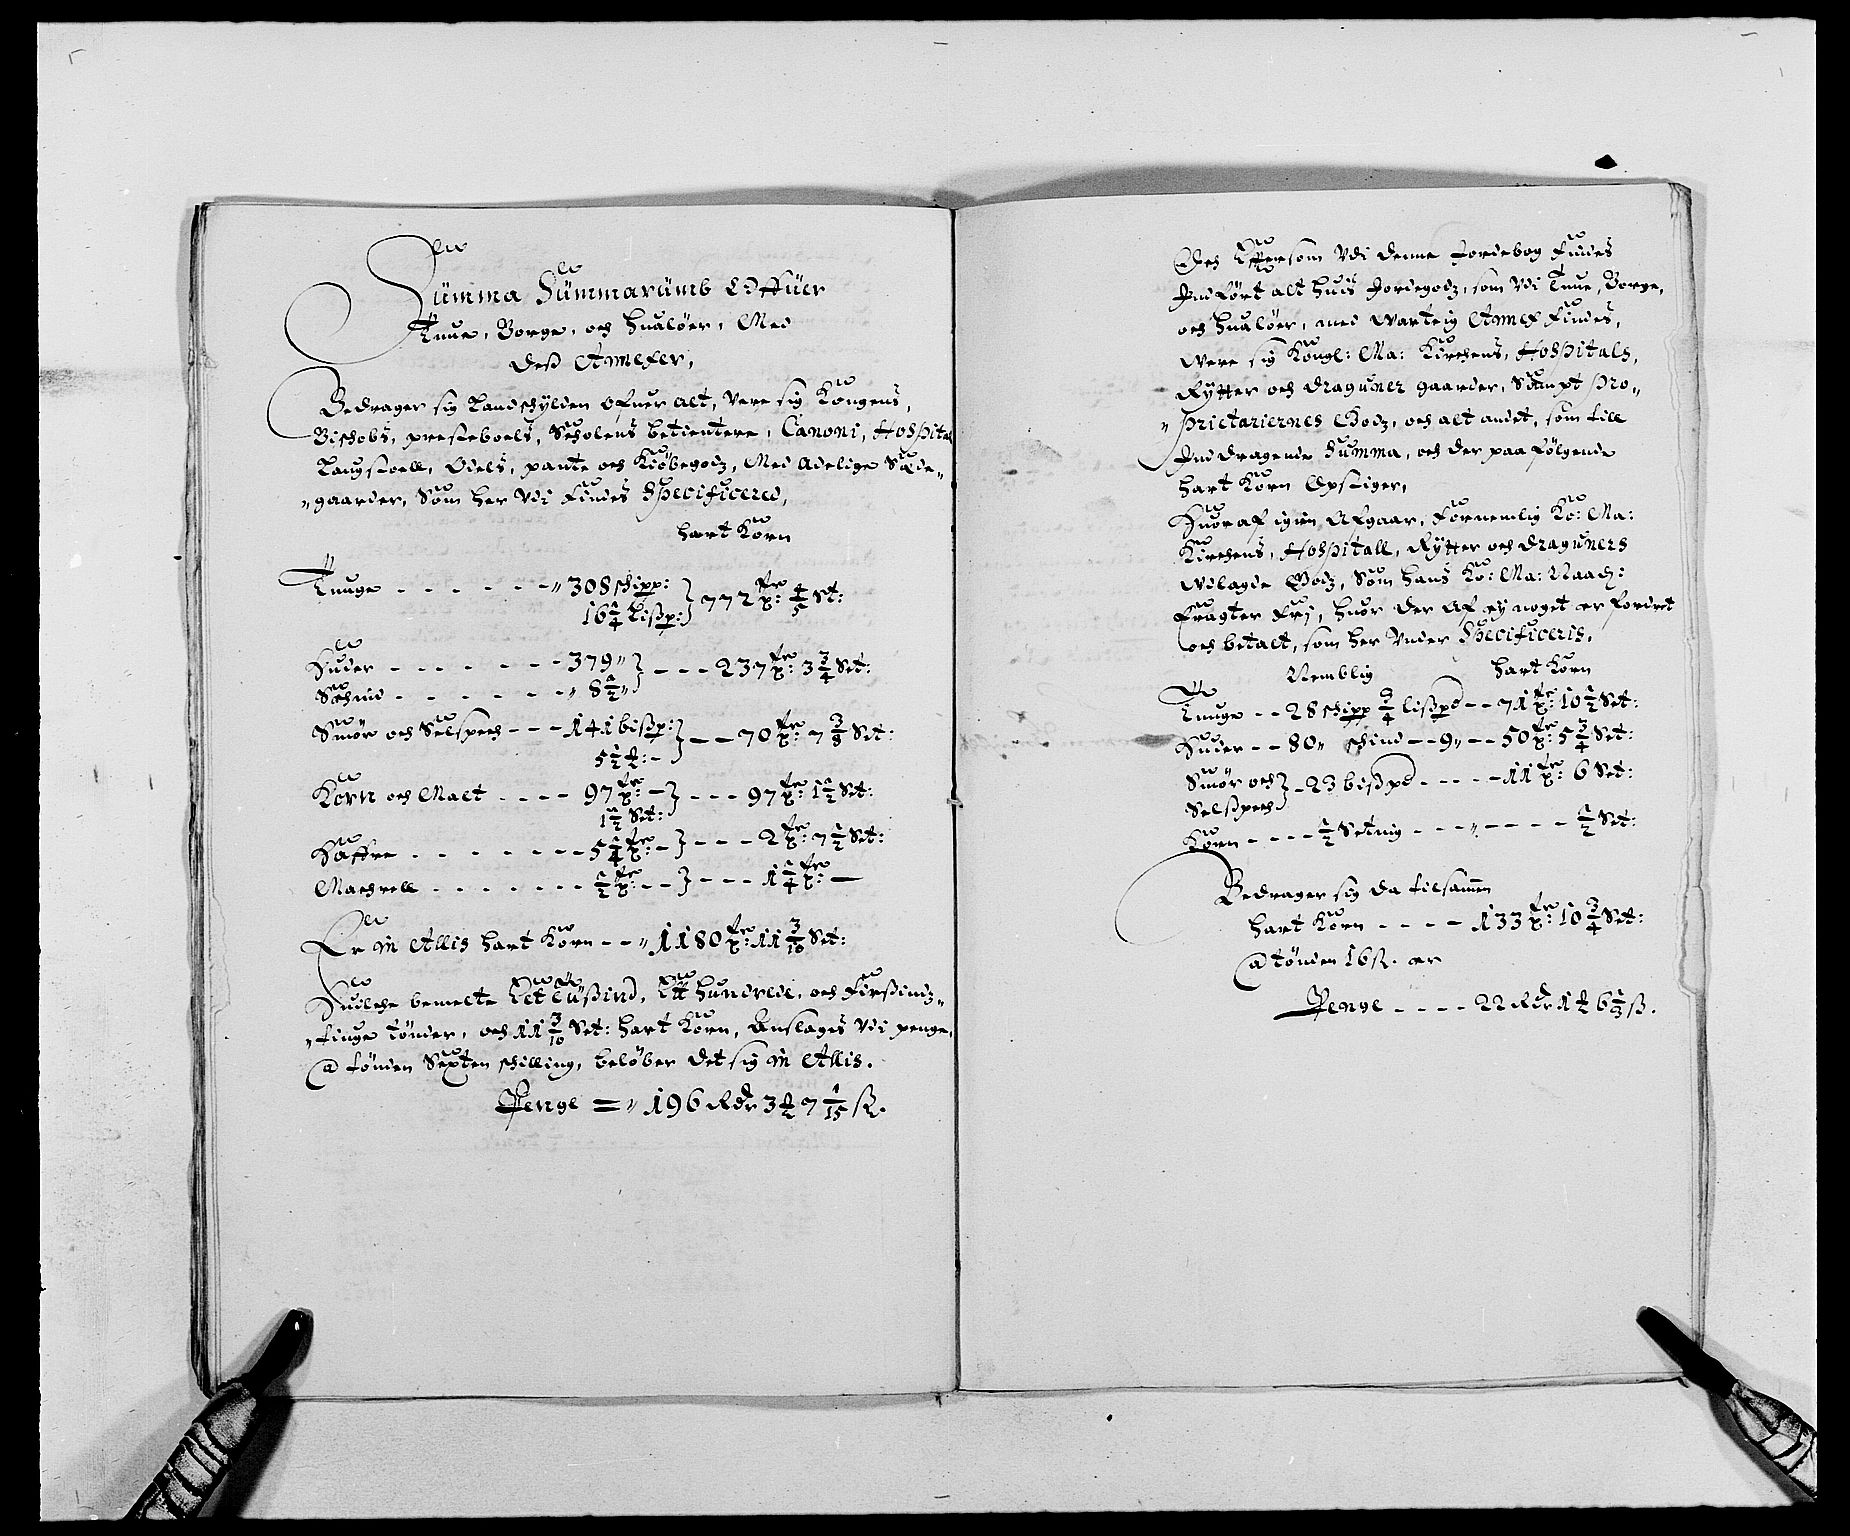 Summa Summarumb Offuer
Tune, Borge, och Hualöer, Med
deß Annexer,
Bedrager sig Landschylden ofuer alt, Vere sig Kongens,
Bischobs, presteboels, Scholens betientere, Canoni, Hospital
Laugstoell, Odels, pante och Kiöbegodz, Med Adelige Sæde-
-gaarder, Som her Vdi findes Specificered,
hart Korn
Tunge - - - - - - 308 schipp:
16 1/4 Lißp: } 772 tr: 4/5 Set:
Huder - - - - - - 379 } - - - 237 tr: 3 3/4 Set:
Schind - - - - - - 8 1/2
Smör och Selspech - - - 141 bißp: } - - 70 tr: 7 3/8 Set:
5 1/2 lb: -
Korn och Malt - - - - 97 tr: - } - - - 97 tr: 1 1/2 Set:
1 1/2 Set:
Haffre - - - - - - - 5 1/4 tr: - } - - - 2 tr: 7 1/2 Set:
Machrell - - - - - - - 1/2 tr: - - } - - - 1 1/4 tr: -
Er in Allis hart Korn - - 1180 tr: 11 3/10 Set:
Huilche bemelte Et tüßind, Et hundrede, och firßindz-
-tiuge tönder, och 11 3/10 Set: hart Korn, Anslagis Vdi penge,
@ tönden Sexten schilling, belöber det sig in Allis.
Penge = 196 Rdr 3 1/2 7 1/15 ß.
Och Effter som Vdi denne Jordebog findes
Indfört alt huis Jordegodz, som Vdi Tune, Borge,
och Hualöer, med Warteig Annex findes,
Were sig Kongl: Ma: Kirchens, Hospitals,
Rytter och Draguner gaarder, Sampt Pro-
-prietariernes Godz, och alt andet, som till
Inddragende Summa, och der paa fölgende
hart Korn Opstiger,
Huor af igien Afgaar, fornemlig Ko: Ma:
Kirchens, Hospitall, Rytter och draguners
Vdlagde Godz, Som hans Ko: Ma: Naad:
fragter frj, huor der af ej noget er fordret
och betalt, som her Vnder Specificeris,
Nemblig hart Korn
Tunge - - 28 schipp 3/4 lißpd - - 71 tr: 10 1/2 Set:
Huder - - 80 schind - - 9 - - 50 tr: 5 3/4 Set:
Smör och } - 23 bißpd - - - - - 11 tr: 6 Set:
Selspech
Korn - - - - 1/2 Setnig - - - - - - - 1/2 Set:
Bedrager sig da tilsamen
hart Korn - - - - 133 tr: 10 3/4 Set:
@ tönden 16 ß. er
Penge - - - - 22 Rdr 1 6 1/3 ß.